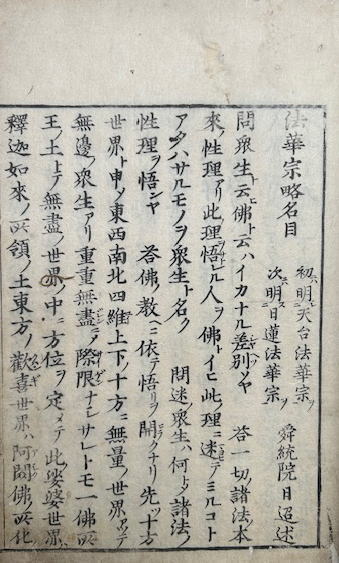 法華宗略名目
初ニハ明ス天台法華宗ヲ
次ニハ明ス日蓮法華宗ヲ
舜統院日迢述
問衆生ト云佛ト云ハイカナル差別ソヤ 答一切諸法本
來ノ性理アリ此理ヲ悟レル人ヲ佛トイヒ此理ニ迷テミルコト
アタハサルモノヲ衆生ト名ク 問迷衆生ハ何トシテ諸法ノ
性理ヲ悟ンヤ 答佛ノ教ヘニ依テ悟リヲ開クナリ先ツ十方
世界ト申ハ東西南北四維上下ノ十方ニ無量ノ世界アツテ
無邊ノ衆生アリ重重無盡ニ際限ナシサレトモ一佛所
王ノ土トテ無盡ノ世界ノ中ニ方位ヲ定メテ此娑婆世界ハ
釋迦如來ノ所領ノ土東方ノ歡喜世界ハ阿閦佛ノ所化